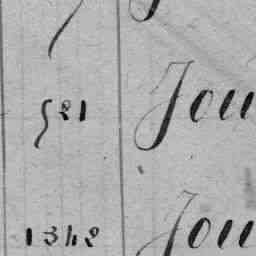 521 Jou
1342 Jou